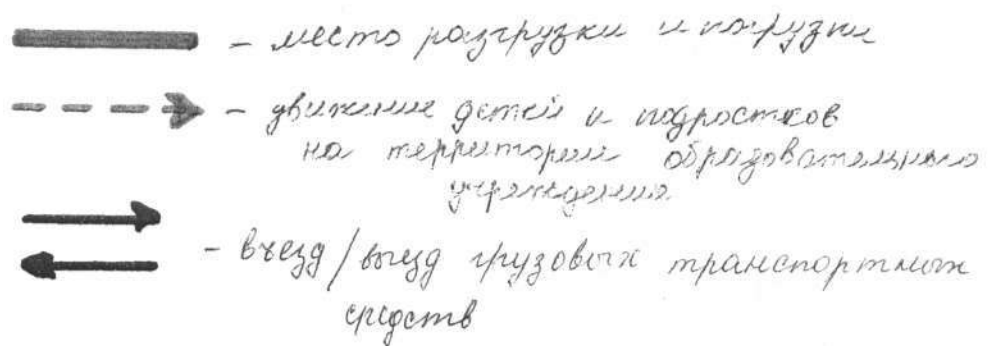 - место разгрузки и погрузки
- движение детей и подростков
на территории образовательного
учреждения
- въезд/выезд грузовых транспортных
средств